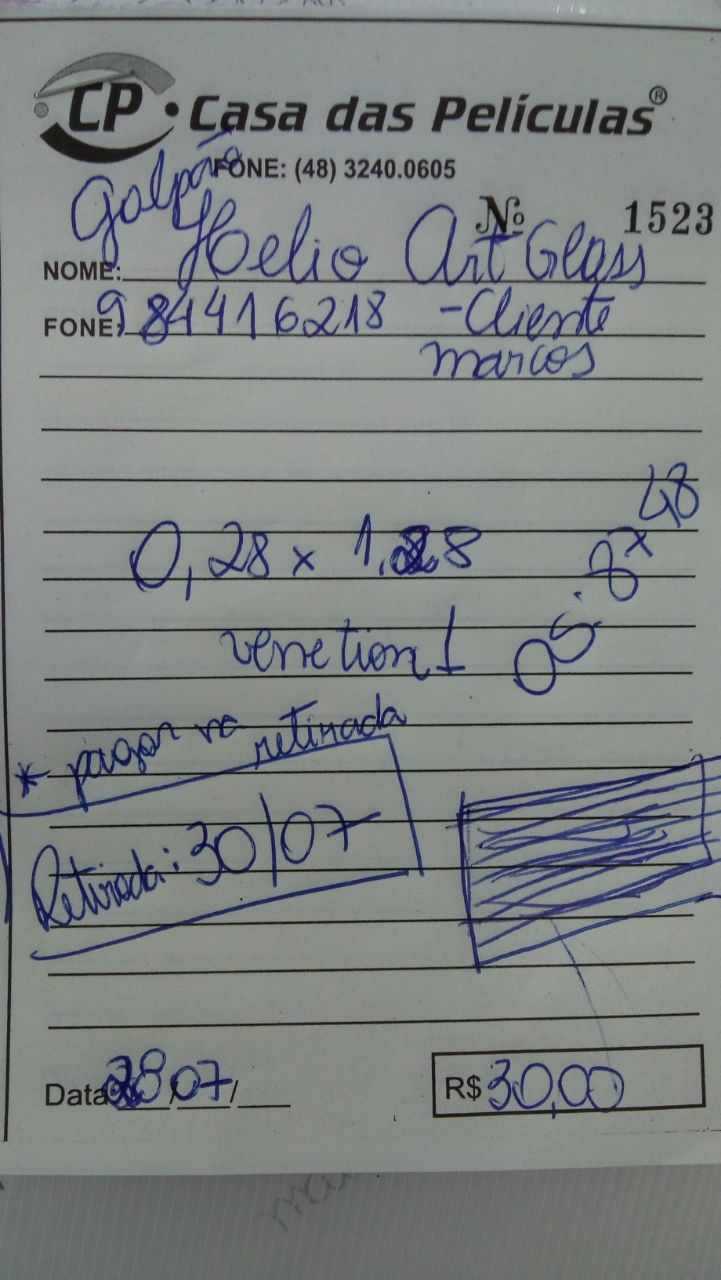 CP • Casa das Películas®
FONE: (48) 3240.0605
Galpão
Nº 1523
NOME: Helio Art Glass
FONE: 984416218 - Cliente
marcos
0,28 x 1,28
8x48
venetion 1
* pagar na retirada
Retirada: 30/07
Data: 28/07/
R$ 30,00